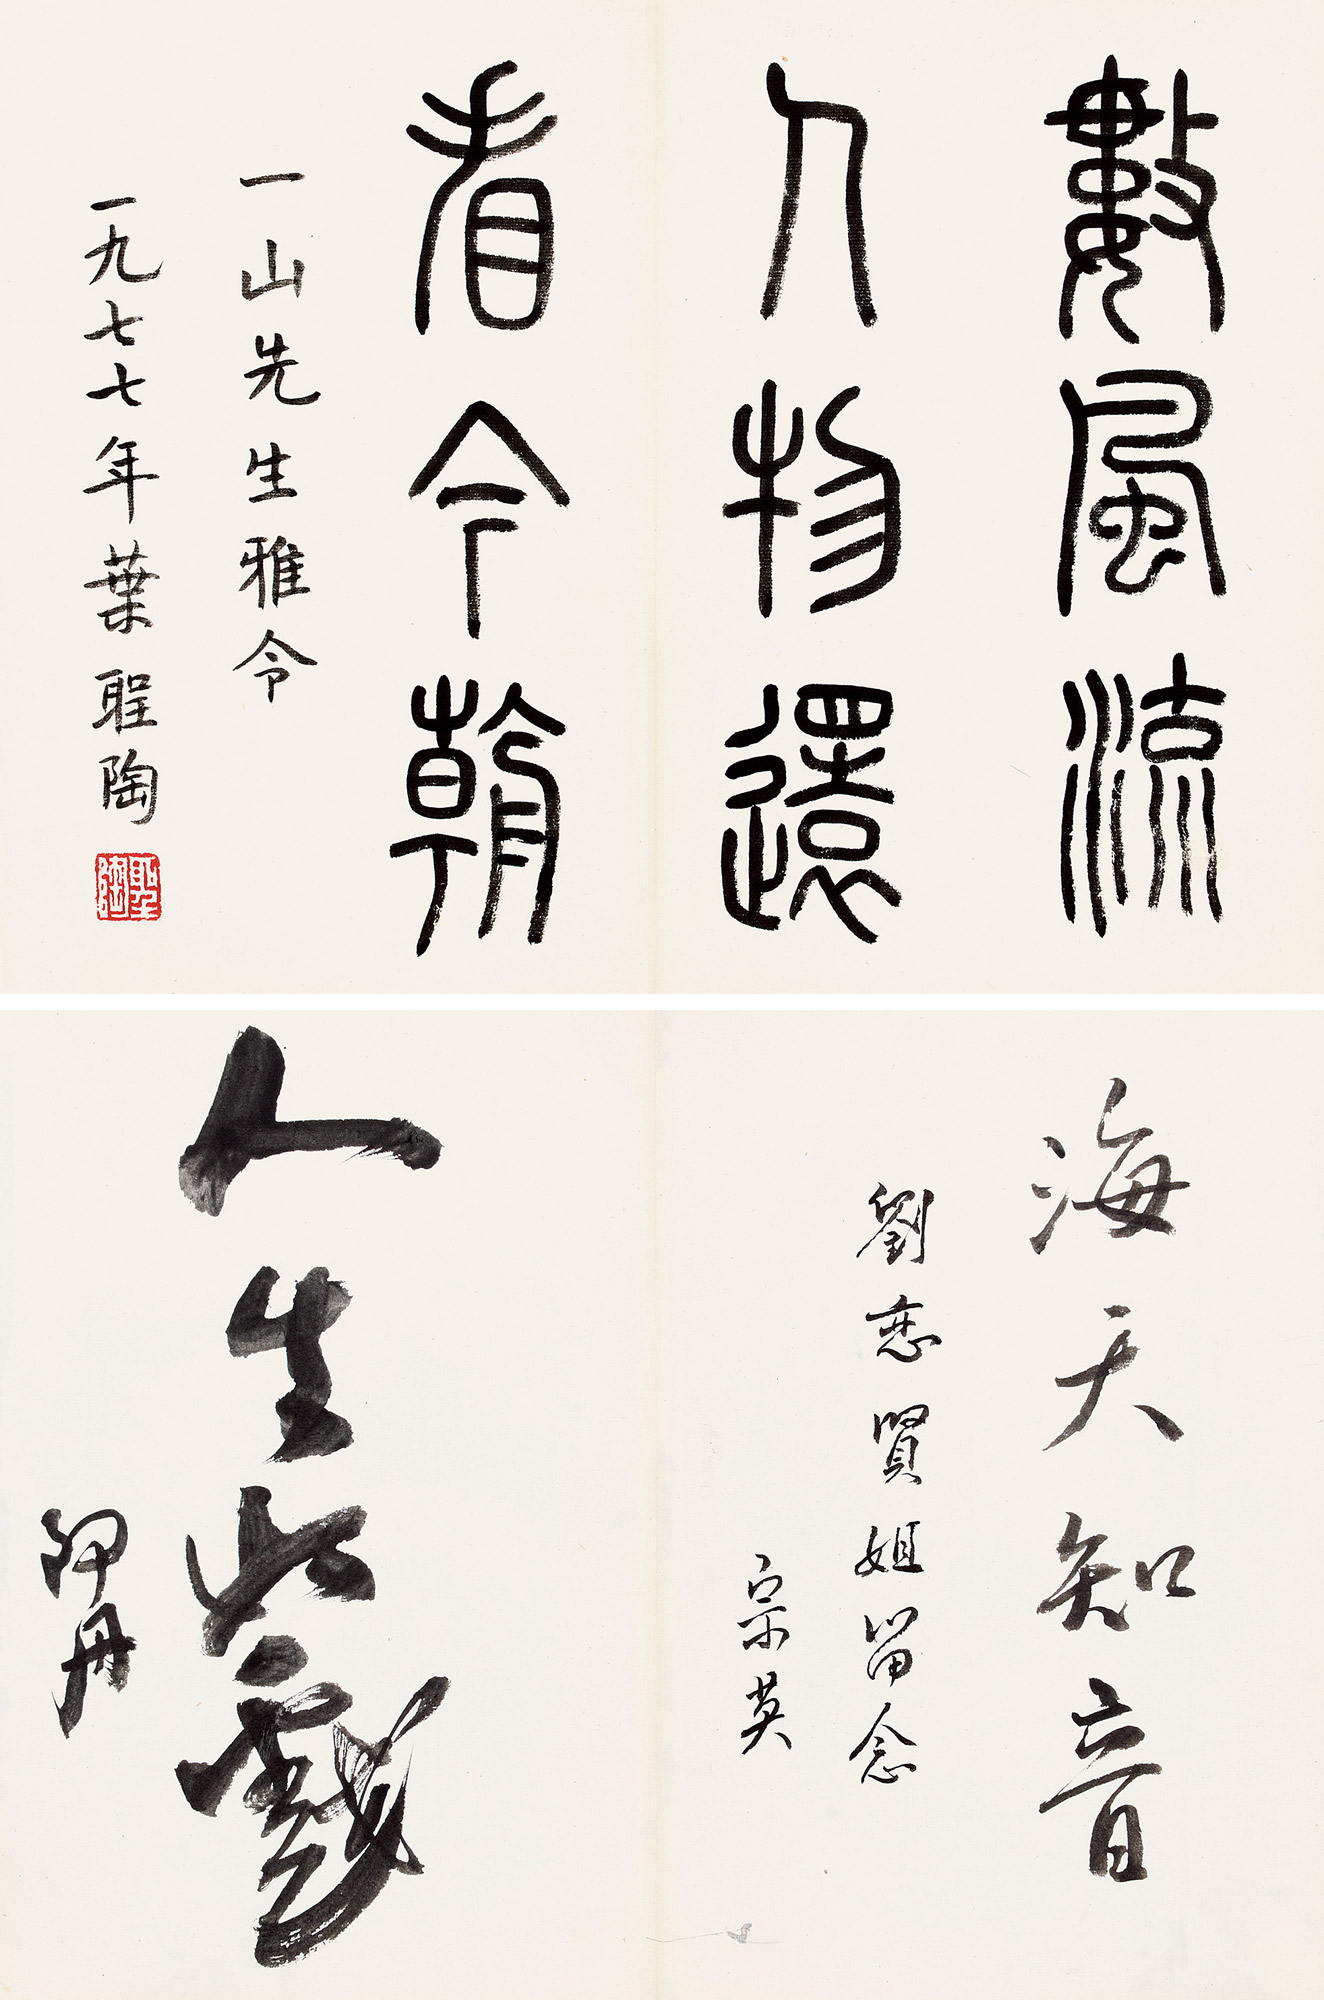 數風流
人物還
看今朝
一山先生雅令
一九七七年葉聖陶
聖陶
海天知音
劉恋賢姐留念
宗英
人生如戲